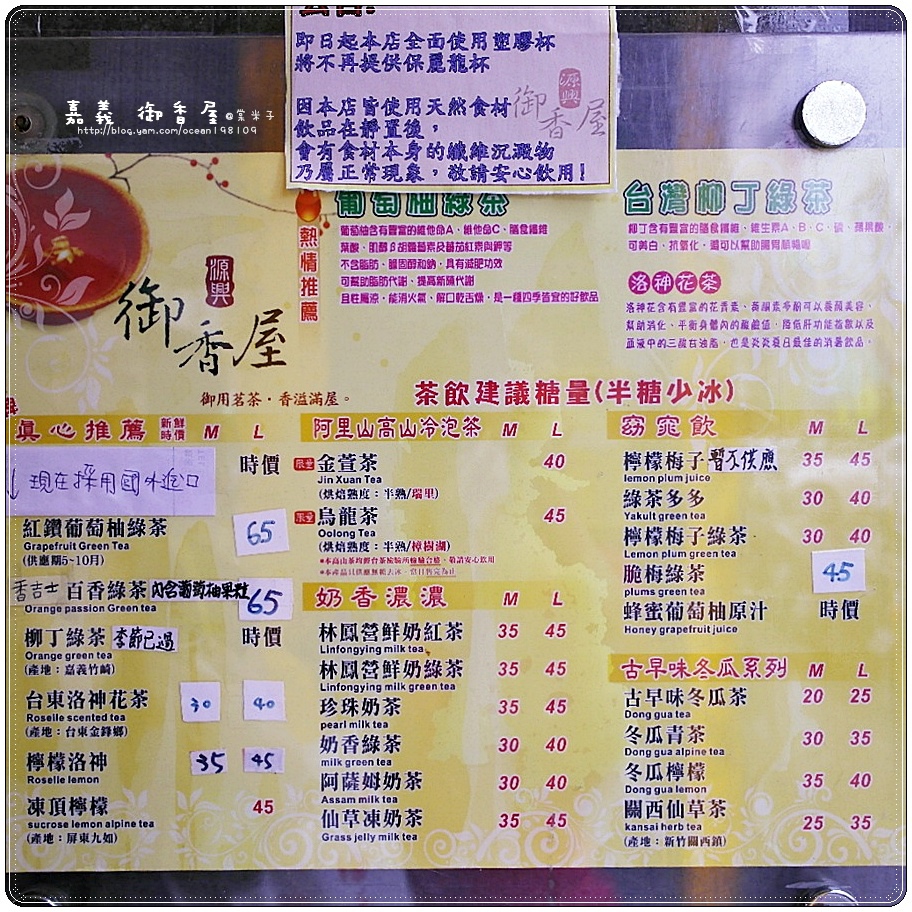 公告:
即日起本店全面使用塑膠杯
將不再提供保麗龍杯
因本店皆使用天然食材
飲品在靜置後,
會有食材本身的纖維沉澱物
乃屬正常現象,敬請安心飲用!
源興
御香屋
嘉義 御香屋@棠米子
http://blog.yam.com/ocean198109
源興
御香屋
御用茗茶・香溢滿屋。
熱情推薦
葡萄柚綠茶
葡萄柚含有豐富的維他命A、維他命C、膳食纖維
葉酸、肌醇β胡蘿蔔素及蕃茄紅素與鉀等
不含脂肪、膽固醇和鈉,具有減肥功效
可幫助脂肪代謝、提高新陳代謝
且性屬涼,能消火氣、解口乾舌燥,是一種四季皆宜的好飲品
台灣柳丁綠茶
柳丁含有豐富的膳食纖維,維生素A、B、C、磷、蘋果酸,
可美白、抗氧化,還可以幫助腸胃順暢喔
洛神花茶
洛神花含有豐富的花青素、黃酮素多酚可以養顏美容、
幫助消化、平衡身體內的酸鹼值,降低肝功能指數以及
血液中的三酸甘油脂,也是炎炎夏日最佳的消暑飲品。
茶飲建議糖量(半糖少冰)
真心推薦 新鮮時價 M L
現在採用國外進口 時價
紅鑽葡萄柚綠茶 65
Grapefruit Green Tea
(供應期5~10月)
香吉士百香綠茶 內含葡萄柚果粒 65
Orange passion Green tea
柳丁綠茶 季節已過 時價
Orange green tea
(產地:嘉義竹崎)
台東洛神花茶 30 40
Roselle scented tea
(產地:台東金鋒鄉)
檸檬洛神 35 45
Roselle lemon
凍頂檸檬 45
sucrose lemon alpine tea
(產地:屏東九如)
阿里山高山冷泡茶 M L
限量 金萱茶 40
Jin Xuan Tea
(烘焙熟度:半熟/瑞里)
限量 烏龍茶 45
Oolong Tea
(烘焙熟度:半熟/樟樹湖)
*本高山茶均經台茶檢驗所檢驗合格,敬請安心飲用
*本產品只供應無糖去冰,當日售完為止
奶香濃濃 M L
林鳳營鮮奶紅茶 35 45
Linfongying milk tea
林鳳營鮮奶綠茶 35 45
Linfongying milk green tea
珍珠奶茶 35 45
pearl milk tea
奶香綠茶 30 40
milk green tea
阿薩姆奶茶 30 40
Assam milk tea
仙草凍奶茶 35 45
Grass jelly milk tea
窈窕飲 M L
檸檬梅子 暫不供應 35 45
lemon plum juice
綠茶多多 30 40
Yakult green tea
檸檬梅子綠茶 30 40
Lemon plum green tea
脆梅綠茶 45
plums green tea
蜂蜜葡萄柚原汁 時價
Honey grapefruit juice
古早味冬瓜系列 M L
古早味冬瓜茶 20 25
Dong gua tea
冬瓜青茶 30 35
Dong gua alpine tea
冬瓜檸檬 35 40
Dong gua lemon
關西仙草茶 25 35
kansai herb tea
(產地:新竹關西鎮)